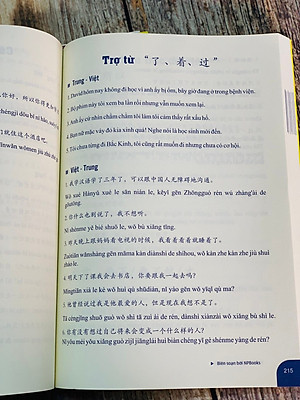 好，所以你得更加
chéngjì dōu bǐ nǐ hǎo,
们就住这个酒店吧。
Trợ từ "了、着、过"
▶ Trung - Việt
1. David hôm nay không đi học vì anh ấy bị ốm, bây giờ đang ở trong bệnh viện.
2. Bộ phim này tôi xem ba lần rồi nhưng vẫn muốn xem lại.
3. Anh ấy cứ nhìn chằm chằm tôi làm tôi cảm thấy rất xấu hổ.
4. Bạn nữ mặc váy đỏ kia xinh quá! Nghe nói là học sinh mới đến.
5. Tôi chưa từng đi Bắc Kinh, tôi cũng rất muốn đi nhưng chưa có cơ hội.
▶ Việt - Trung
1. 我学汉语学了三年了，可以跟中国人无障碍地沟通。
Wǒ xué Hànyǔ xué le sān nián le, kěyǐ gēn Zhōngguó rén wú zhàng'ài de
gōutōng.
2. 你什么也别说了，我不想听。
Nǐ shénme yě bié shuō le, wǒ bù xiǎng tīng.
3. 昨天晚上跟妈妈看电视的时候，我看着看着就睡着了。
Zuótiān wǎnshàng gēn māmā kàn diànshì de shíhou, wǒ kàn zhe kàn zhe jiù shuì
zháo le.
4. 明天下了课我会去书店，你要跟我一起去吗？
Míngtiān xià le kè wǒ huì qù shūdiàn, nǐ yào gēn wǒ yīqǐ qù ma?
5. 他曾经说过我是他最爱的人，但是现在我想不是了。
Tā céngjīng shuō guò wǒ shì tā zuì ài de rén, dànshì xiànzài wǒ xiǎng bù shì le.
6. 你有没有想过自己将来会变成一个什么样的人？
Nǐ yǒu méi yǒu xiǎng guò zìjǐ jiānglái huì biàn chéng yī gè shénme yàng de rén?
▶ Biên soạn bởi NPBooks
215